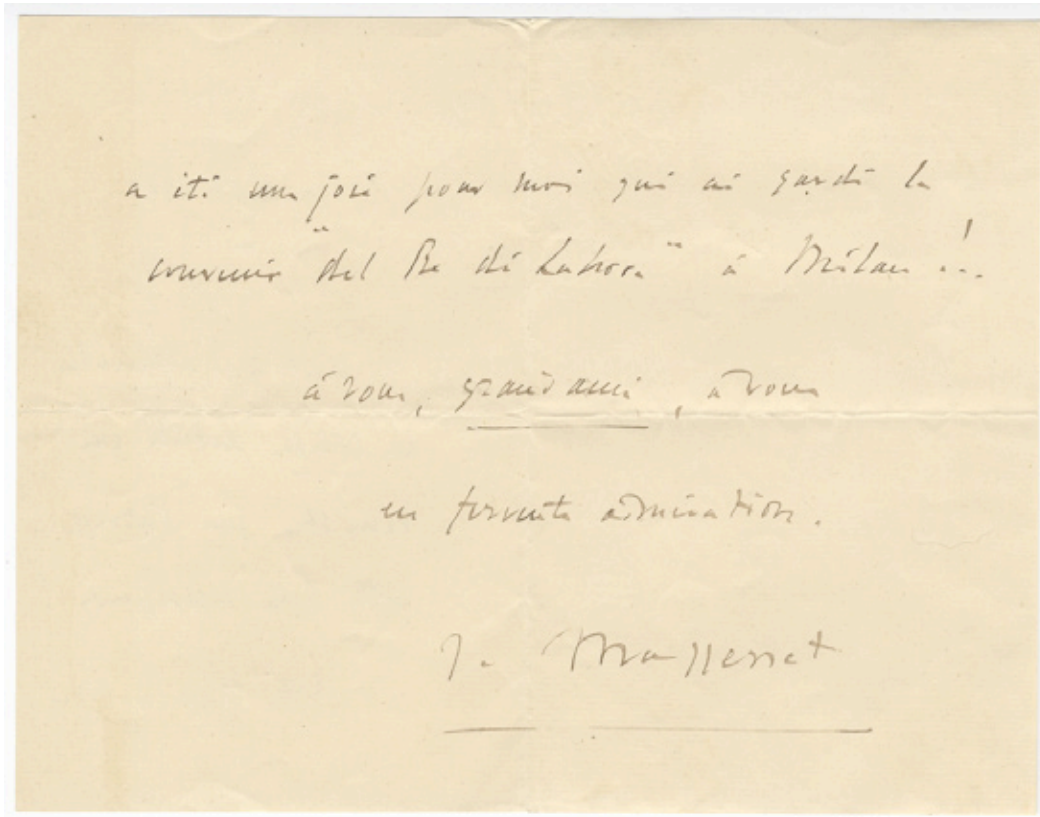 a été une joie pour moi qui ai gardé le
souvenir "del Re di Lahore" à Milan !...
à vous, grand ami, à vous
en fervente admiration.
J. Massenet